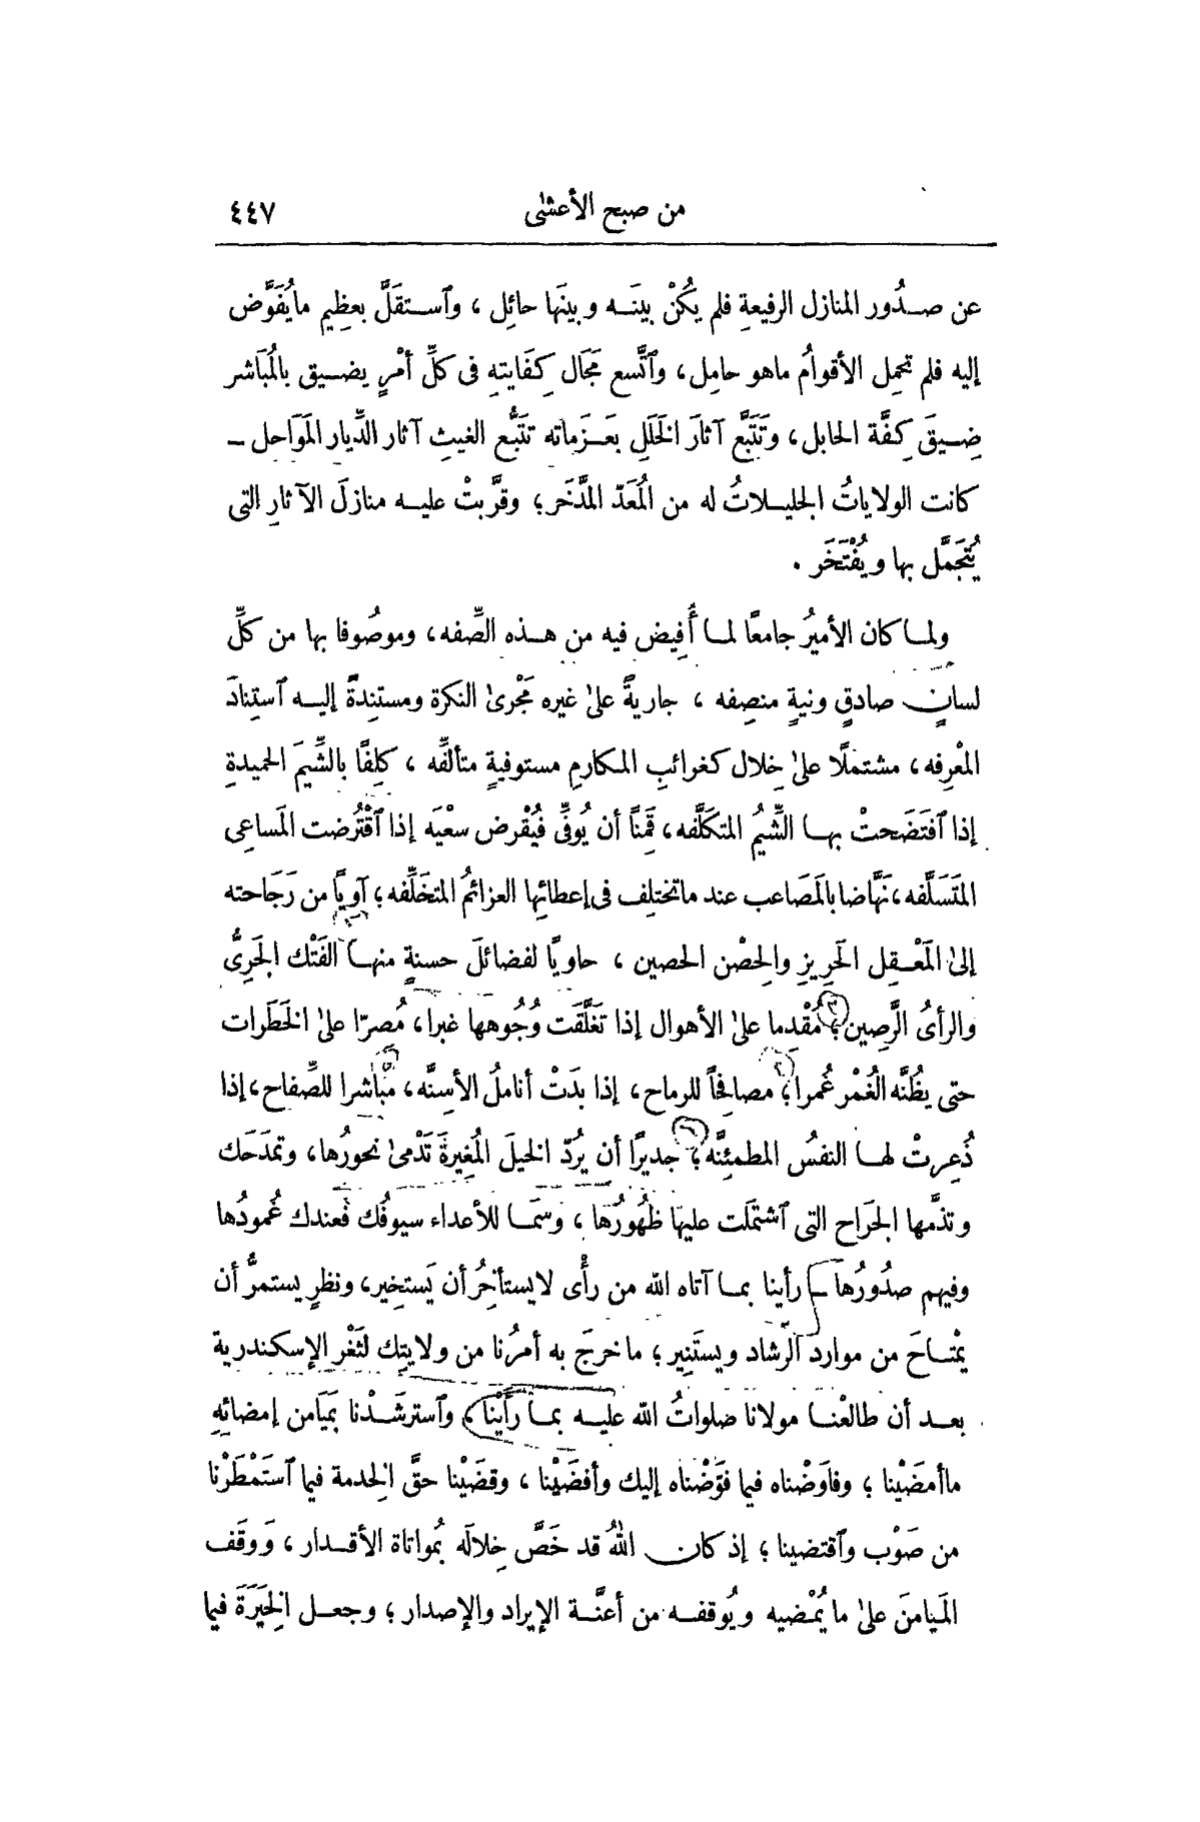 من صبح الأعشى ٤٤٧
عن صدُور المنازل الرفيعةِ فلم يكُنْ بينَه وبينَها حائِل ، وٱستقَلَّ بعظِيم مايُفَوَّض
إليه فلم تحمِل الأقوامُ ماهو حامِل، وٱتَّسع مَجَال كِفَايتهِ فى كلِّ أمْرٍ يضيق بالمُبَاشر
ضِيقَ كِفَّة الحابل، وتَتَبَّع آثارَ الخَلَلِ بعَزَماته تتَبُّع الغيثِ آثار الدِّيار المَوَاحل ـ
كانت الولاياتُ الجليلاتُ له من المُعَدّ المدَّخَر؛ وقرَّبتْ عليه منازلَ الآثارِ التى
يُتَجَمَّل بها ويُفْتَخَر .
ولما كان الأميرُ جامعًا لما أُفِيض فيه من هذه الصِّفه، وموصُوفا بها من كلِّ
لسانٍ صادقٍ ونيةٍ منصِفه ، جاريةً علىٰ غيره مَجْرىٰ النكرة ومستنِدةً إليه ٱستِنادَ
المعْرِفه، مشتملًا علىٰ خِلال كغرائبِ المكارمِ مستوفيةٍ متألفِّه ، كلِفًا بالشِّيَم الحميدةِ
إذا ٱفتَضَحتْ بها الشِّيمُ المتكَلَّفه، قَمِنًا أن يُوفَّى فيُقْرض سعْيَه إذا ٱقْتُرضت المَساعِى
المتَسَلَّفه، نَهَّاضا بالمَصَاعب عند ماتختلِف فى إعطائِها العزائمُ المتخَلِّفه؛ آوِيًا من رَجَاحته
إلىٰ المَعْقِل الحَرِيزِ والحِصْن الحصين ، حاويًا لفضائلَ حسنةٍ منها الفَتْك الجَرِىُّ
والرأىُ الرَّصِين؛ مُقْدِما علىٰ الأهوال إذا تَعَلَّقَت وُجُوهها غبرا، مُصِرّا علىٰ الخَطَرات
حتى يظُنَّه الغُمْر غُمرا؛ مصافِحًا للرماح، إذا بدَتْ أناملُ الأسِنَّه، مُبَاشرا للصِّفاح، إذا
ذُعِرتْ لها النفسُ المطمئِنَّه؛ جديرًا أن يُرَدّ الخيلَ المُغِيرةَ تَدْمىٰ نحورُها، وتمدَحَك
وتذمَّها الجَراح التى ٱشتمَلَت عليها ظُهُورُها ، وسَمَا للأعداء سيوفُك فعندك غُمودُها
وفيهم صدُورُها ـ رأينا بما آتاه الله من رأْى لايستأخِرُ أن يَستخِير، ونظرٍ يستمرُّ أن
يمْتاحَ من موارد الرشاد ويستَنِير ؛ ما خرجَ به أمرُنا من ولايتِك لثَغْر الإسكندرية
بعد أن طالعْنا مولانا صلواتُ الله عليه بما رأَيْنا، وٱسترشَدْنا بمَيَامن إمضائهِ
ماأمضَيْنا ؛ وفاوَضْناه فيما فوَّضْناه إليك وأفضَيْنا ، وقضَيْنا حقَّ الخِدمة فيما ٱستَمْطَرْنا
من صَوْب وٱقتضينا ؛ إذ كان اللهُ قد خَصَّ خِلالَه بمُواتاة الأقدار ، وَوقَف
المَيامنَ علىٰ ما يُمْضيه ويُوقفه من أعنَّة الإيراد والإصدار ؛ وجعل الخِيَرَةَ فيما